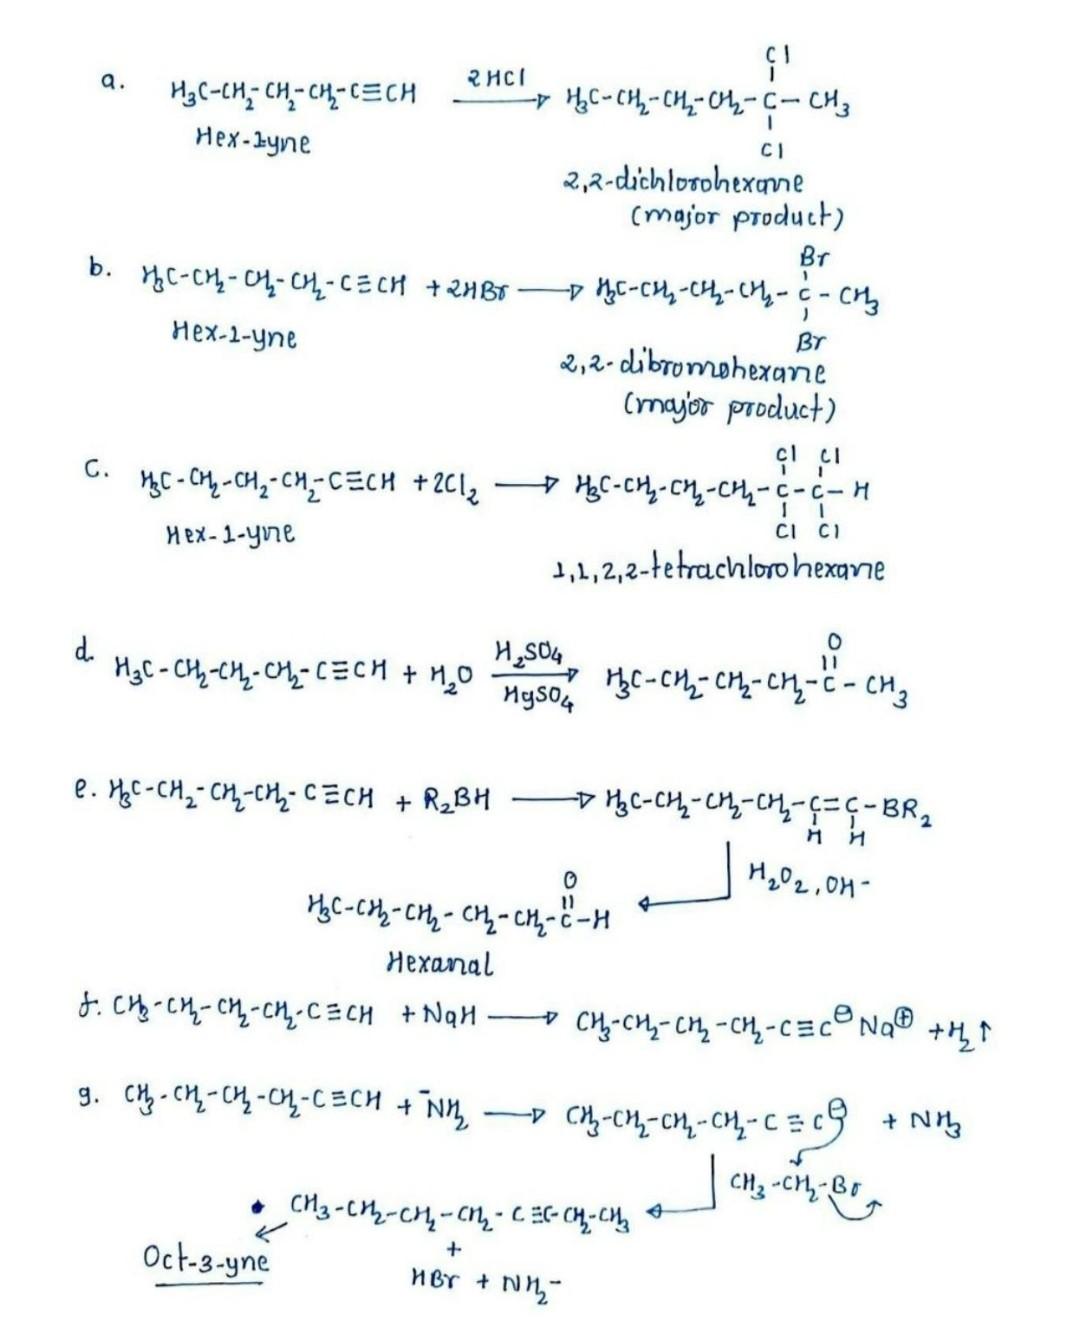 Cl
a. H₃C-CH₂-CH₂-CH₂-C≡CH 2HCl H₃C-CH₂-CH₂-CH₂-C-CH₃
Hex-1yne Cl
2,2-dichlorohexane
(major product)
Br
b. H₃C-CH₂-CH₂-CH₂-C≡CH + 2HBr → H₃C-CH₂-CH₂-CH₂-C-CH₃
Hex-1-yne Br
2,2-dibromohexane
(major product)
Cl Cl
C. H₃C-CH₂-CH₂-CH₂-C≡CH + 2Cl₂ → H₃C-CH₂-CH₂-CH₂-C-C-H
Hex-1-yne Cl Cl
1,1,2,2-tetrachlorohexane
O
d. H₃C-CH₂-CH₂-CH₂-C≡CH + H₂O H₂SO₄ → HgSO₄ H₃C-CH₂-CH₂-CH₂-C-CH₃
e. H₃C-CH₂-CH₂-CH₂-C≡CH + R₂BH → H₃C-CH₂-CH₂-CH₂-C=C-BR₂
H H
H₂O₂, OH-
O
H₃C-CH₂-CH₂-CH₂-CH₂-C-H
Hexanal
f. CH₃-CH₂-CH₂-CH₂-C≡CH + NaH → CH₃-CH₂-CH₂-CH₂-C≡C⊖ Na⊕ + H₂↑
g. CH₃-CH₂-CH₂-CH₂-C≡CH + ⁻NH₂ → CH₃-CH₂-CH₂-CH₂-C≡C⊖ + NH₃
CH₃-CH₂-Br
• CH₃-CH₂-CH₂-CH₂-C≡C-CH₂-CH₃
Oct-3-yne +
HBr + NH₂-